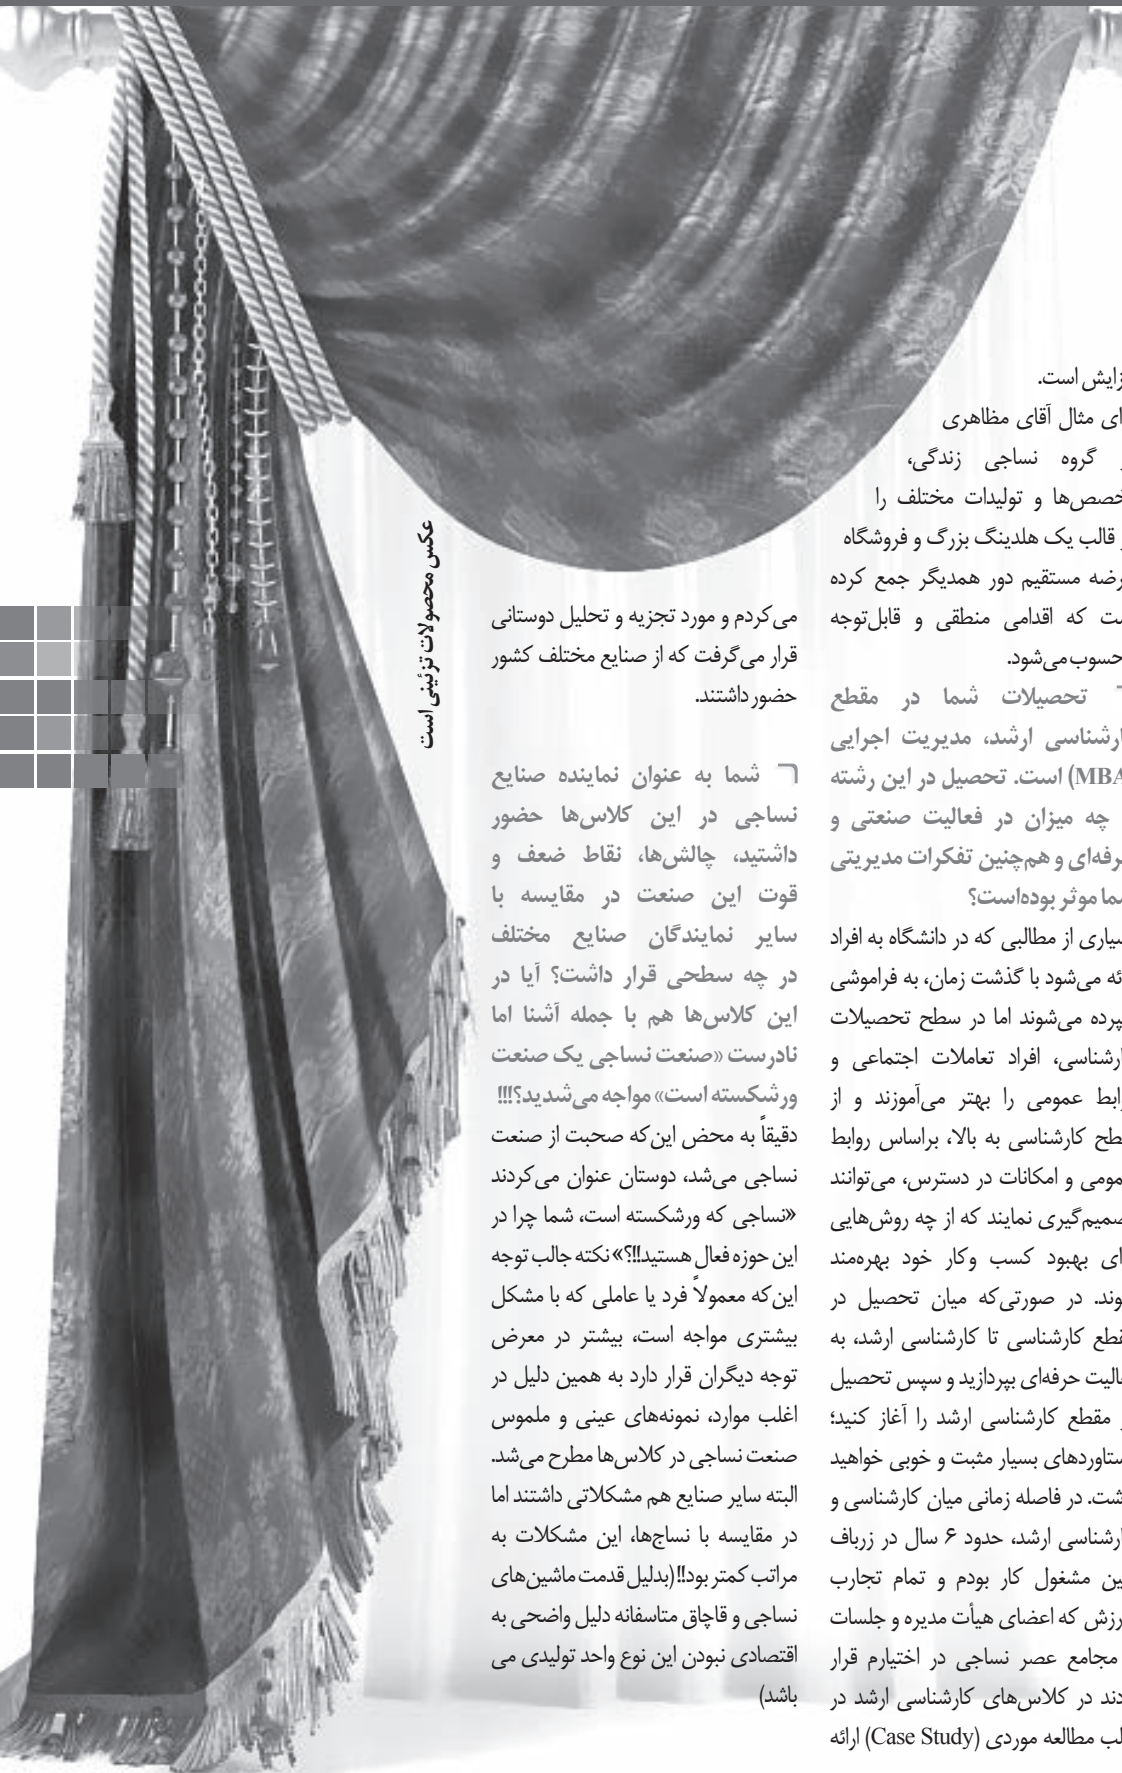 زایش است.
ای مثال آقای مظاهری
گروه نساجی زندگی،
خصص‌ها و تولیدات مختلف را
قالب یک هلدینگ بزرگ و فروشگاه
رضه مستقیم دور همدیگر جمع کرده
ست که اقدامی منطقی و قابل‌توجه
حسوب می‌شود.
تحصیلات شما در مقطع
ارشناسی ارشد، مدیریت اجرایی
(MBA) است. تحصیل در این رشته
چه میزان در فعالیت صنعتی و
رفه‌ای و هم‌چنین تفکرات مدیریتی
ما موثر بوده‌است؟
سیاری از مطالبی که در دانشگاه به افراد
ائه می‌شود با گذشت زمان، به فراموشی
پرده می‌شوند اما در سطح تحصیلات
ارشناسی، افراد تعاملات اجتماعی و
وابط عمومی را بهتر می‌آموزند و از
طح کارشناسی به بالا، براساس روابط
مومی و امکانات در دسترس، می‌توانند
صمیم‌گیری نمایند که از چه روش‌هایی
ای بهبود کسب وکار خود بهره‌مند
وند. در صورتی‌که میان تحصیل در
قطع کارشناسی تا کارشناسی ارشد، به
عالیت حرفه‌ای بپردازید و سپس تحصیل
مقطع کارشناسی ارشد را آغاز کنید؛
ستاوردهای بسیار مثبت و خوبی خواهید
شت. در فاصله زمانی میان کارشناسی و
ارشناسی ارشد، حدود ۶ سال در زرباف
ین مشغول کار بودم و تمام تجارب
رزش که اعضای هیأت مدیره و جلسات
مجامع عصر نساجی در اختیارم قرار
دند در کلاس‌های کارشناسی ارشد در
لب مطالعه موردی (Case Study) ارائه
می‌کردم و مورد تجزیه و تحلیل دوستانی
قرار می‌گرفت که از صنایع مختلف کشور
حضور داشتند.
شما به عنوان نماینده صنایع
نساجی در این کلاس‌ها حضور
داشتید، چالش‌ها، نقاط ضعف و
قوت این صنعت در مقایسه با
سایر نمایندگان صنایع مختلف
در چه سطحی قرار داشت؟ آیا در
این کلاس‌ها هم با جمله آشنا اما
نادرست «صنعت نساجی یک صنعت
ورشکسته است» مواجه می‌شدید؟!!!
دقیقاً به محض این‌که صحبت از صنعت
نساجی می‌شد، دوستان عنوان می‌کردند
«نساجی که ورشکسته است، شما چرا در
این حوزه فعال هستید!!؟» نکته جالب توجه
این‌که معمولاً فرد یا عاملی که با مشکل
بیشتری مواجه است، بیشتر در معرض
توجه دیگران قرار دارد به همین دلیل در
اغلب موارد، نمونه‌های عینی و ملموس
صنعت نساجی در کلاس‌ها مطرح می‌شد.
البته سایر صنایع هم مشکلاتی داشتند اما
در مقایسه با نساج‌ها، این مشکلات به
مراتب کمتر بود!! (بدلیل قدمت ماشین‌های
نساجی و قاچاق متاسفانه دلیل واضحی به
اقتصادی نبودن این نوع واحد تولیدی می
باشد)
عکس محصولات تزئینی است